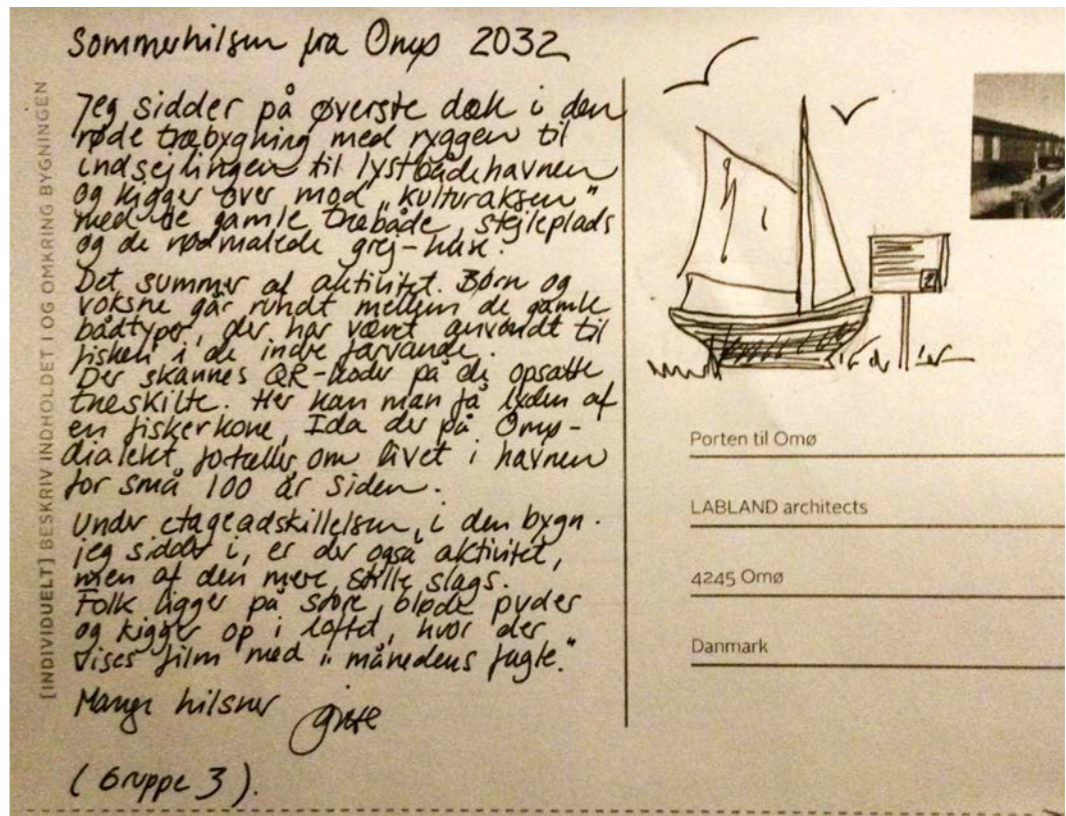 Sommerhilsen fra Omø 2032
[INDIVIDUELT] BESKRIV INDHOLDET I OG OMKRING BYGNINGEN
Jeg sidder på øverste dæk i den
røde træbygning med ryggen til
indsejlingen til lystbådehavnen
og kigger over mod "kulturaksen"
med de gamle træbåde, stejleplads
og de rødmalede grej-huse.
Det summer af aktivitet. Børn og
voksne går rundt mellem de gamle
bådtyper, der har været anvendt til
fiskeri i de indre farvande.
Der skannes QR-koder på de opsatte
træskilte. Her kan man få lyden af
en fiskerkone, Ida der på Omø-
dialekt fortæller om livet i havnen
for små 100 år siden.
Under etageadskillelsen, i den bygn.
jeg sidder i, er der også aktivitet,
men af den mere stille slags.
Folk ligger på store, bløde puder
og kigger op i loftet, hvor der
vises film med "månedens fugle."
Mange hilsner
(Gruppe 3).
Porten til Omø
LABLAND architects
4245 Omø
Danmark